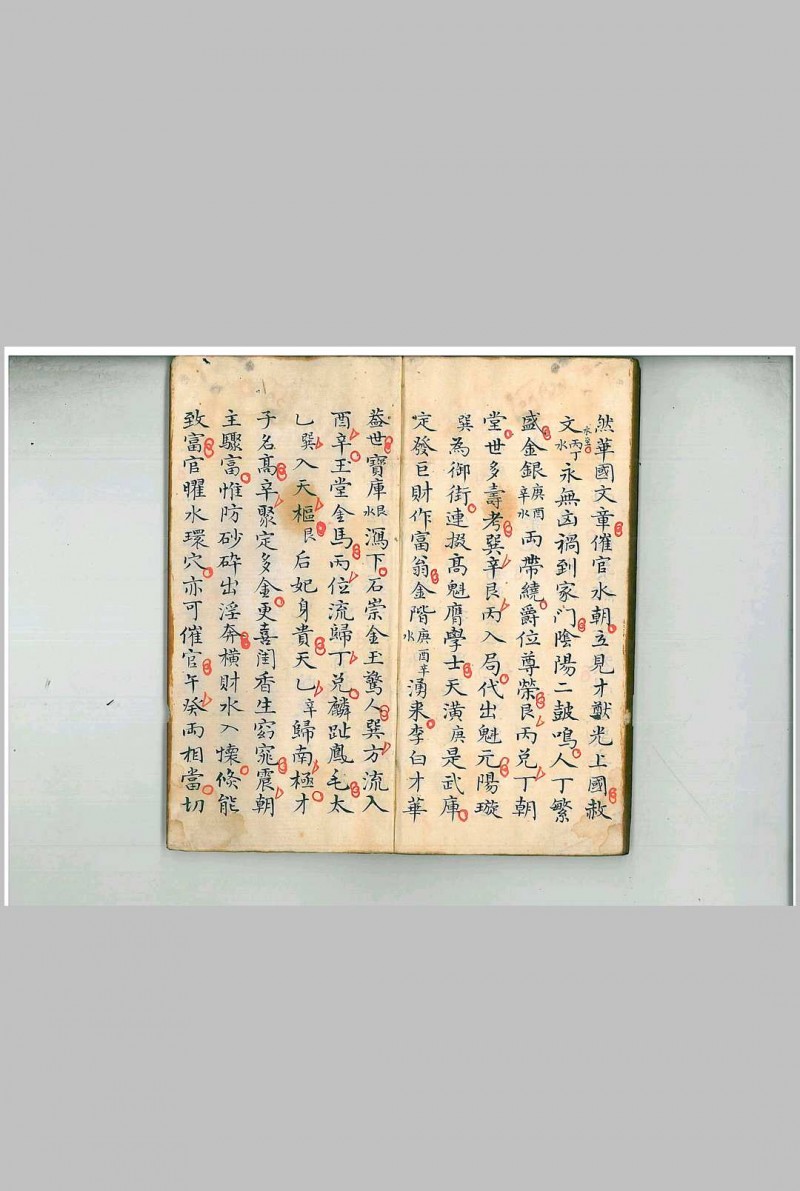 然華國文章催官水朝立見才猷光上國赦
文丙丁水永無凶禍到家門陰陽二鼓鳴人丁繁
盛金銀庚酉辛水兩帶繞爵位尊榮艮丙兌丁朝
堂世多壽考巽辛艮丙入局代出魁元陽璇
巽為御街連掇高魁膺學士天潢庚是武庫
定發巨財作富翁金階庚酉辛水湧来李白才華
盖世寶庫艮水瀉下石崇金玉驚人巽方流入
酉辛玉堂金馬丙位流歸丁兌麟趾鳳毛太
乙巽入天樞艮后妃身貴天乙辛歸南極才
子名髙辛聚定多金更喜閨香生窈窕震朝
主驟富惟防砂碎出淫奔橫財水入懐倏能
致富官曜水環穴亦可催官午癸両相當切